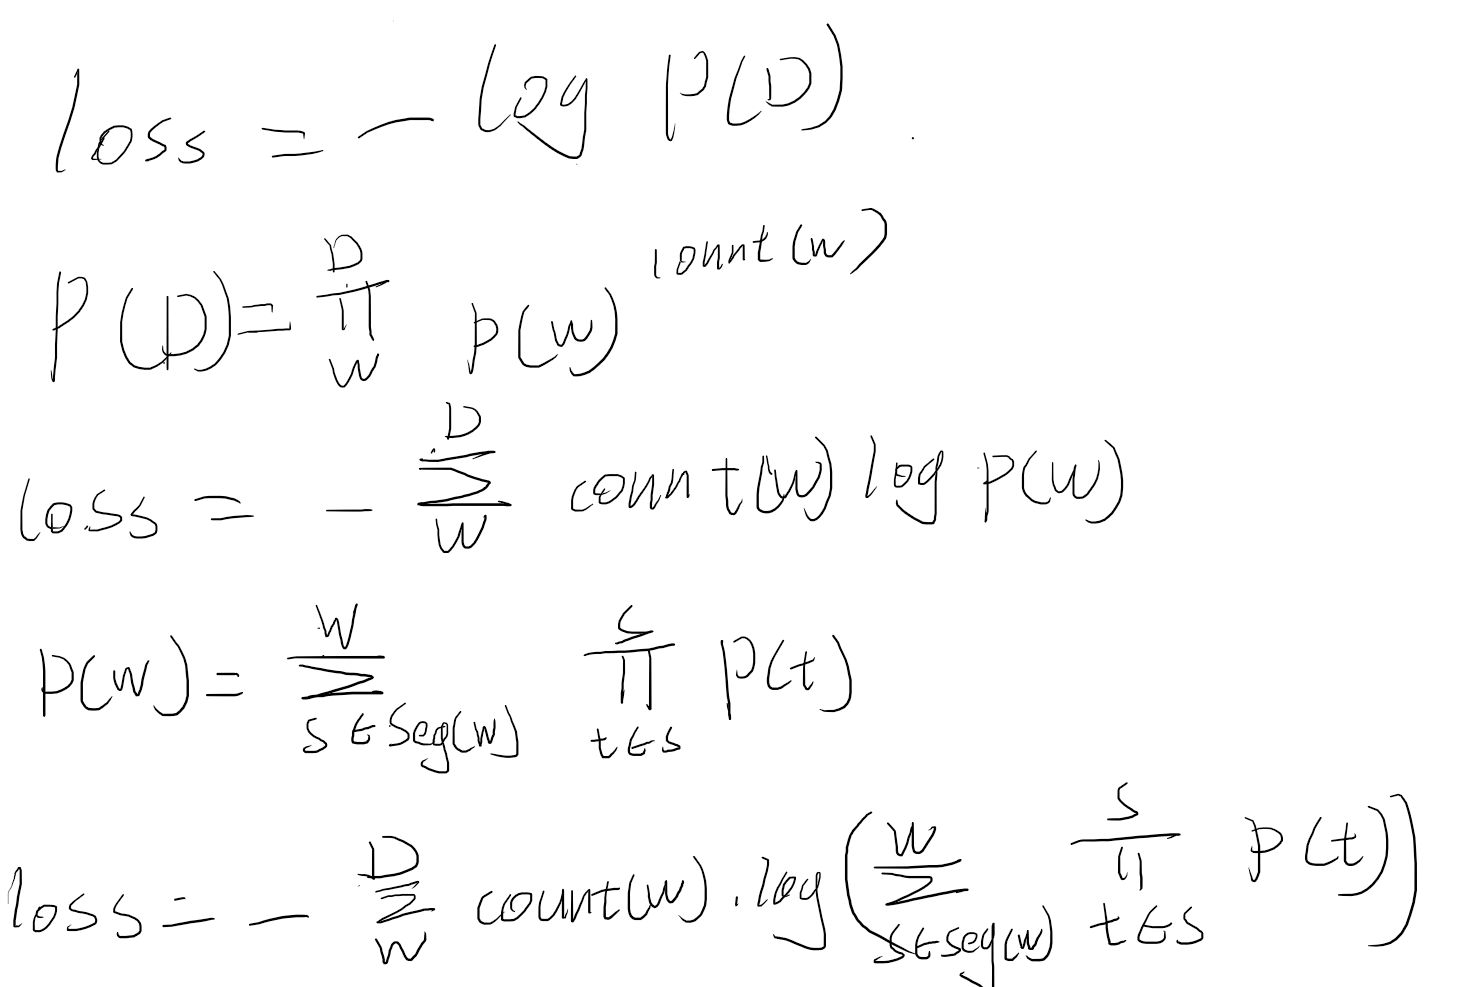 loss = - log P(D)
P(D) = ∏_{w}^{D} p(w)^{count(w)}
loss = - ∑_{w}^{D} count(w) log p(w)
p(w) = ∑_{s∈Seg(w)}^{w} ∏_{t∈s}^{s} p(t)
loss = - ∑_{w}^{D} count(w) · log(∑_{s∈seg(w)}^{w} ∏_{t∈s}^{s} p(t))